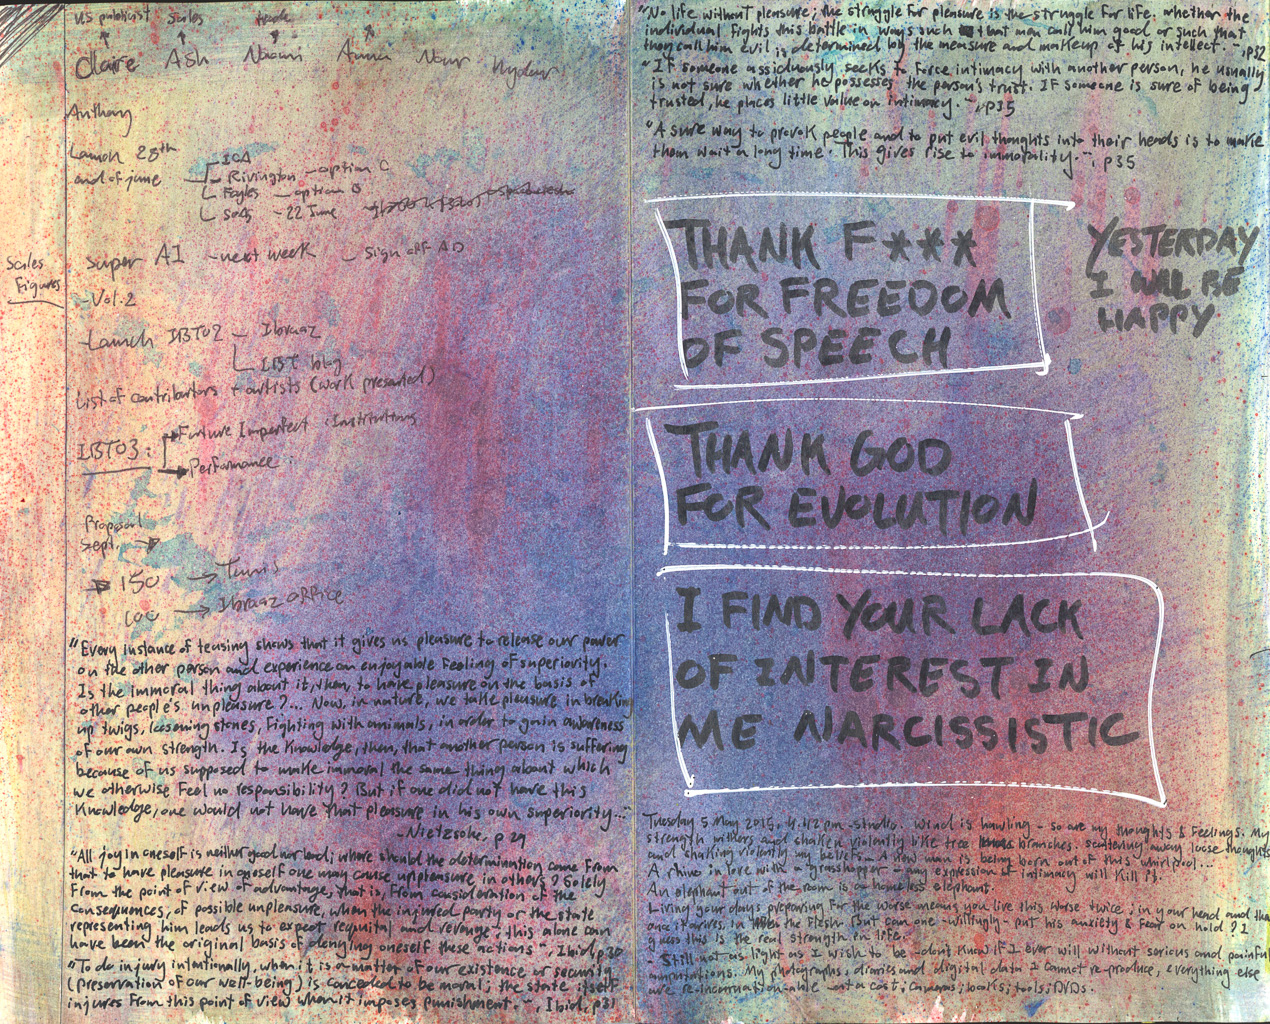 US publicist Sales trade
Claire Ash Naomi Anna Nour Hydar
Anthony
Launch 25th
end of june
ICA
Rivington - option C
Foyles - option B
SOAS - 22 June
Super AI - next week - sign off AD
Sales
Figures
- Vol. 2
Launch IBT02 - Ibraaz
IBT blog
List of contributors + artists (work presented)
IBT03: Future Imperfect : Institutions
Performance :
Proposal
Sept.
150 → Tunis
100 → Ibraaz office
"Every instance of teasing shows that it gives us pleasure to release our power
on the other person and experience an enjoyable feeling of superiority.
Is the immoral thing about it, then, to have pleasure on the basis of
other people's unpleasure?... Now, in nature, we take pleasure in breaking
up twigs, loosening stones, fighting with animals, in order to gain awareness
of our own strength. Is the knowledge, then, that another person is suffering
because of us supposed to make immoral the same thing about which
we otherwise feel no responsibility? But if one did not have this
knowledge, one would not have that pleasure in his own superiority..."
- Nietzsche, p 29
"All joy in oneself is neither good nor bad; where should the determination come from
that to have pleasure in oneself one may cause unpleasure in others? Solely
from the point of view of advantage, that is, from consideration of the
consequences, of possible unpleasure, when the injured party or the state
representing him leads us to expect requital and revenge; this alone can
have been the original basis of denying oneself these actions", Ibid, p30
"To do injury intentionally, when it is a matter of our existence or security
(preservation of our well-being) is conceded to be moral; the state itself
injures from this point of view when it imposes punishment.", Ibid, p31
"No life without pleasure; the struggle for pleasure is the struggle for life. whether the
individual fights this battle in ways such that men call him good or such that
they call him evil is determined by the measure and makeup of his intellect.", p52
"If someone assiduously seeks to force intimacy with another person, he usually
is not sure whether he possesses the person's trust. If someone is sure of being
trusted, he places little value on intimacy.", p35
"A sure way to provok people and to put evil thoughts into their heads is to make
them wait a long time. This gives rise to immorality.", p35
THANK F***
FOR FREEDOM
OF SPEECH
YESTERDAY
I WILL BE
HAPPY
THANK GOD
FOR EVOLUTION
I FIND YOUR LACK
OF INTEREST IN
ME NARCISSISTIC
Tuesday 5 May 2015, 4.42pm - studio. Wind is howling - so are my thoughts & feelings. My
strength withers and shaken violently like tree branches. scattering away loose thoughts
and shaking violently my beliefs. A new man is being born out of this whirlpool...
A rhino in love with a grasshopper - any expression of intimacy will kill it.
An elephant out of the room is a homeless elephant.
Living your days preparing for the worse means you live this worse twice; in your head and then
once it arrives, in the flesh. But can one - willingly - put his anxiety & fear on hold? I
guess this is the real strength in life.
- Still not as light as I wish to be - don't know if I ever will without serious and painful
amputations. My photographs, diaries and digital data I cannot re-produce, everything else
are re-incarnation-able - at a cost; cameras; books; tools; DVDs.